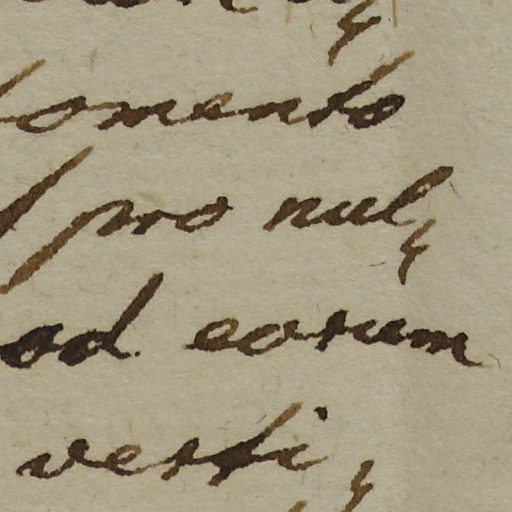 omento
pro nul,
od eorum
vesti,